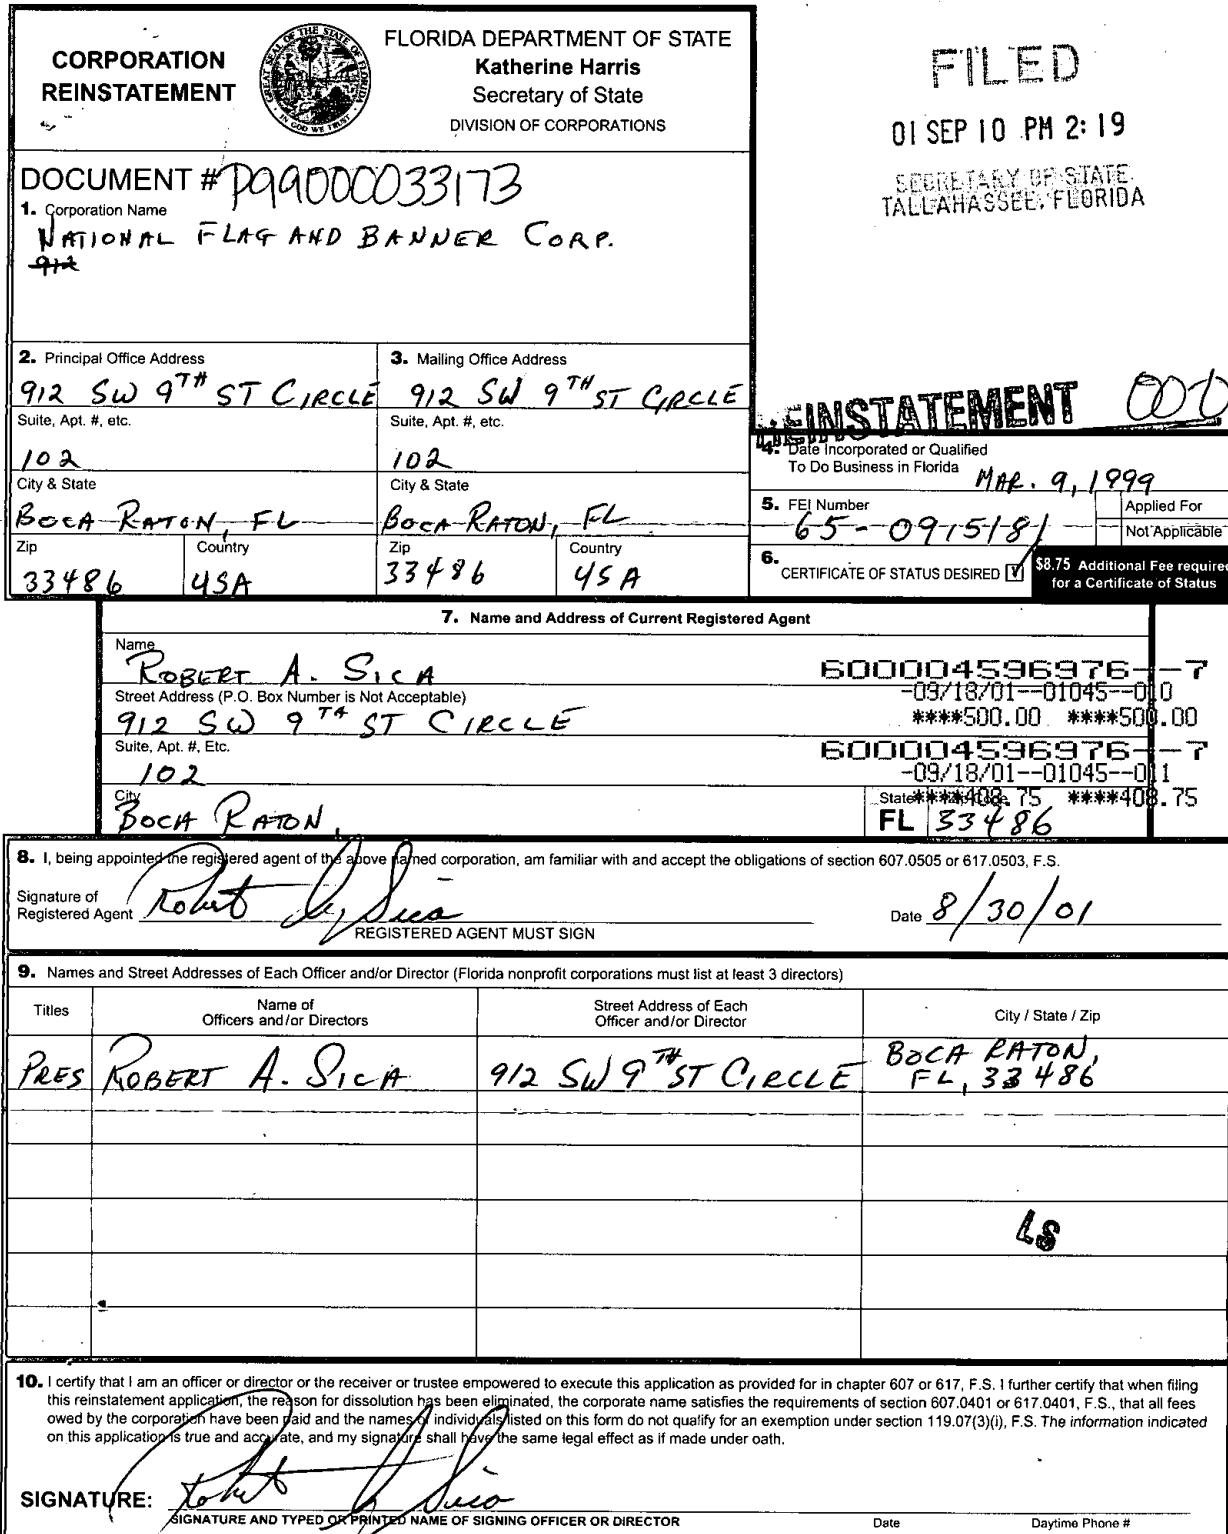 CORPORATION
REINSTATEMENT
GREAT SEAL OF THE STATE OF FLORIDA
IN GOD WE TRUST
FLORIDA DEPARTMENT OF STATE
Katherine Harris
Secretary of State
DIVISION OF CORPORATIONS
FILED
01 SEP 10 PM 2:19
SECRETARY OF STATE
TALLAHASSEE, FLORIDA
DOCUMENT # P99000033173
1. Corporation Name
NATIONAL FLAG AND BANNER CORP.
912
2. Principal Office Address
912 SW 9TH ST CIRCLE
Suite, Apt. #, etc.
102
City & State
BOCA RATON, FL
Zip Country
33486 USA
3. Mailing Office Address
912 SW 9TH ST CIRCLE
Suite, Apt. #, etc.
102
City & State
BOCA RATON, FL
Zip Country
33486 USA
REINSTATEMENT
4. Date Incorporated or Qualified
To Do Business in Florida
MAR. 9, 1999
5. FEI Number
65-0915181
Applied For
Not Applicable
6. CERTIFICATE OF STATUS DESIRED
$8.75 Additional Fee required
for a Certificate of Status
7. Name and Address of Current Registered Agent
Name
ROBERT A. SICA
Street Address (P.O. Box Number is Not Acceptable)
912 SW 9TH ST CIRCLE
Suite, Apt. #, Etc.
102
City
BOCA RATON,
State
FL 33486
600004596976--7
-09/18/01--01045--010
****500.00 ****500.00
600004596976--7
-09/18/01--01045--011
****408.75 ****408.75
8. I, being appointed the registered agent of the above named corporation, am familiar with and accept the obligations of section 607.0505 or 617.0503, F.S.
Signature of
Registered Agent Robert A. Sica
REGISTERED AGENT MUST SIGN
Date 8/30/01
9. Names and Street Addresses of Each Officer and/or Director (Florida nonprofit corporations must list at least 3 directors)
Titles
Name of
Officers and/or Directors
Street Address of Each
Officer and/or Director
City / State / Zip
PRES ROBERT A. SICA 912 SW 9TH ST CIRCLE BOCA RATON,
FL, 33486
LS
10. I certify that I am an officer or director or the receiver or trustee empowered to execute this application as provided for in chapter 607 or 617, F.S. I further certify that when filing
this reinstatement application, the reason for dissolution has been eliminated, the corporate name satisfies the requirements of section 607.0401 or 617.0401, F.S., that all fees
owed by the corporation have been paid and the names of individuals listed on this form do not qualify for an exemption under section 119.07(3)(i), F.S. The information indicated
on this application is true and accurate, and my signature shall have the same legal effect as if made under oath.
SIGNATURE: Robert A. Sica
SIGNATURE AND TYPED OR PRINTED NAME OF SIGNING OFFICER OR DIRECTOR
Date Daytime Phone #